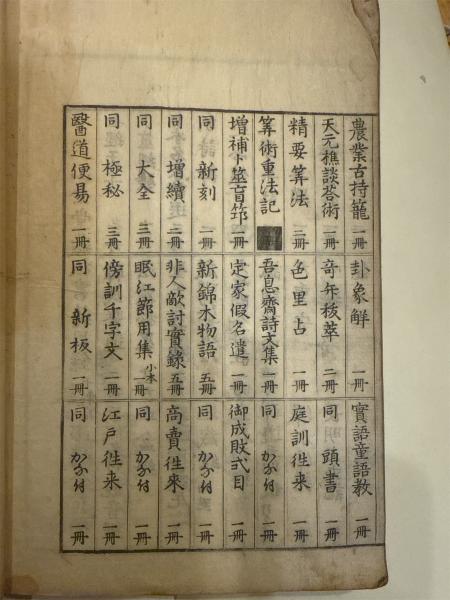 農業古持籠 一冊
天元樵談答術 一冊
精要筭法 三冊
筭術重法記
増補卜筮盲筇 一冊
同 新刻 一冊
同 増續 二冊
同 大全 三冊
同 極秘 三冊
醫道便易 一冊
卦象解 一冊
奇年拔萃 二冊
色里占 一冊
吾息齋詩文集 一冊
定家假名遣 一冊
新錦木物語 五冊
非人敵討實録 五冊
眠江節用集 小本 一冊
傍訓千字文 一冊
同 新板 一冊
實語童語教 一冊
同 頭書 一冊
庭訓徃来 一冊
同 かな付 一冊
御成敗式目 一冊
同 かな付 一冊
商賣徃來 一冊
同 かな付 一冊
江戸徃来 一冊
同 かな付 一冊